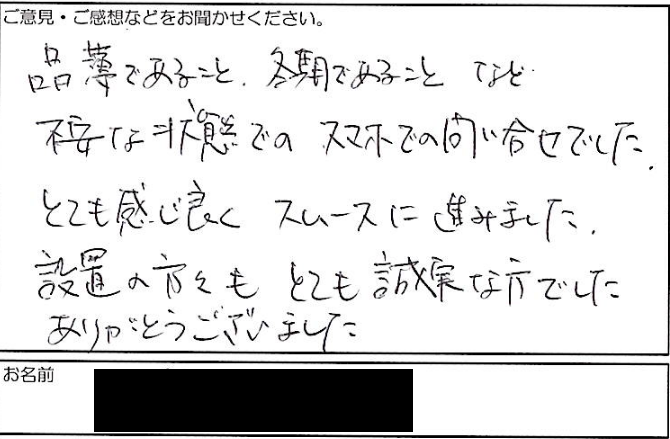 ご意見・ご感想などをお聞かせください。
品薄であること、冬期であること など
不安な状態での スマホでの問い合せでした。
とても感じ良く スムースに 進みました。
設置の方々も とても誠実な方でした
ありがとうございました
お名前